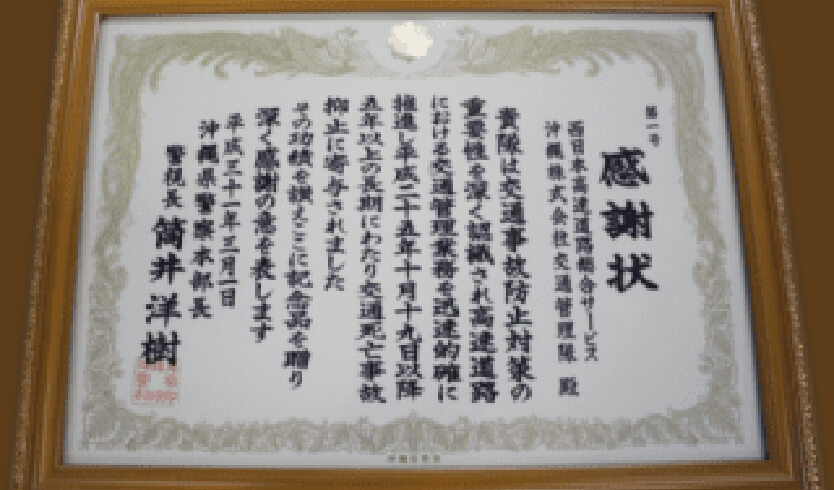 第一号
感謝状
西日本高速道路総合サービス
沖縄株式会社交通管理隊 殿
貴隊は交通事故防止対策の
重要性を深く認識され高速道路
における交通管理業務を迅速的確に
推進し平成二十五年十月十九日以降
五年以上の長期にわたり交通死亡事故
抑止に寄与されました
その功績を讃えここに記念品を贈り
深く感謝の意を表します
平成三十一年三月一日
沖縄県警察本部長
警視長 筒井洋樹